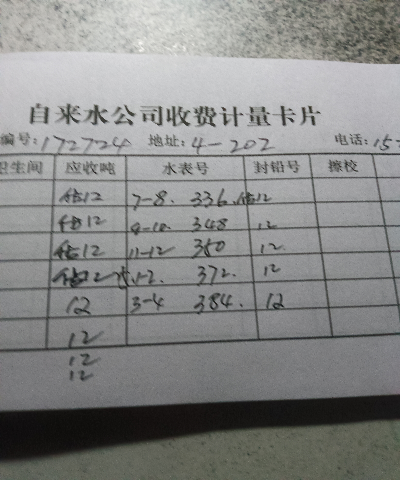 自来水公司收费计量卡片
编号:172724 地址:4-202 电话:15
卫生间 应收吨 水表号 封铅号 擦校
估12 7-8. 336. 估12
估12 9-10. 348 12
估12 11-12 360 12.
估12 1-2. 372. 12
12 3-4 384. 12
12
12
12